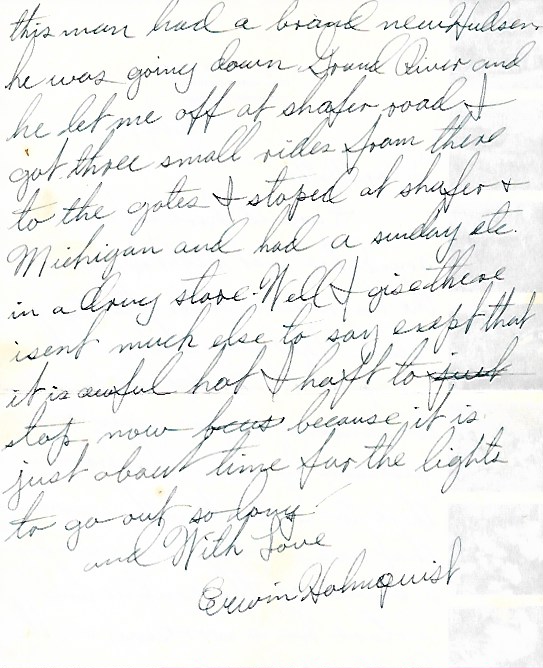 this man had a brand new Hudson
he was going down Grand River and
he let me off at shafer road I
got three small rides from there
to the gates I stoped at shafer +
Michigan and had a sunday etc.
in a drug store. Well I gise there
isent much else to say exept that
it is awful hot I haft to just
stop now becus because it is
just about time for the lights
to go out so long
and With Love
Erwin Holmquist